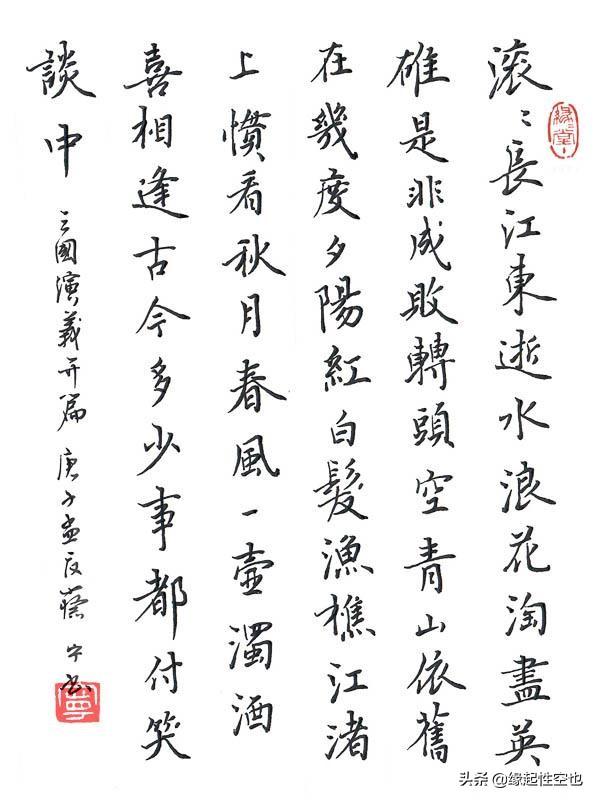 滚〻長江東逝水浪花淘盡英
雄是非成敗轉頭空青山依舊
在幾度夕陽紅白髮漁樵江渚
上慣看秋月春風一壺濁酒
喜相逢古今多少事都付笑
談中 三國演義开篇 庚子孟夏蔡宁书
头条 @缘起性空也